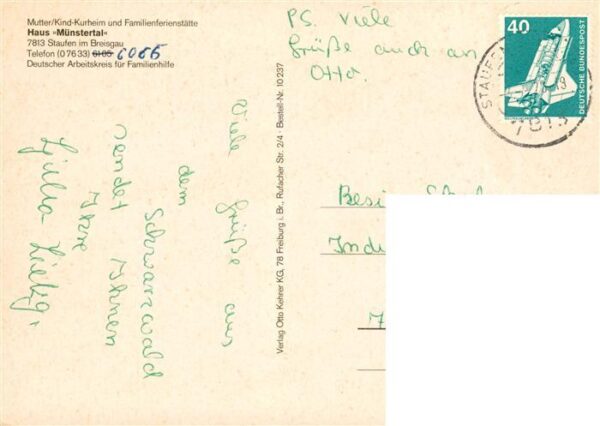 Mutter/Kind-Kurheim und Familienferienstätte
Haus »Münstertal«
7813 Staufen im Breisgau
Telefon (0 76 33) 6105 6066
Deutscher Arbeitskreis für Familienhilfe
PS. Viele
Grüße auch an
Otto.
40
DEUTSCHE BUNDESPOST
STAUFEN
7813
Viele Grüße aus
dem Schwarzwald
sendet Ihnen
Ihre
Verlag Otto Kehrer KG, 78 Freiburg i. Br., Rufacher Str. 2/4 · Bestell-Nr. 10 237
7